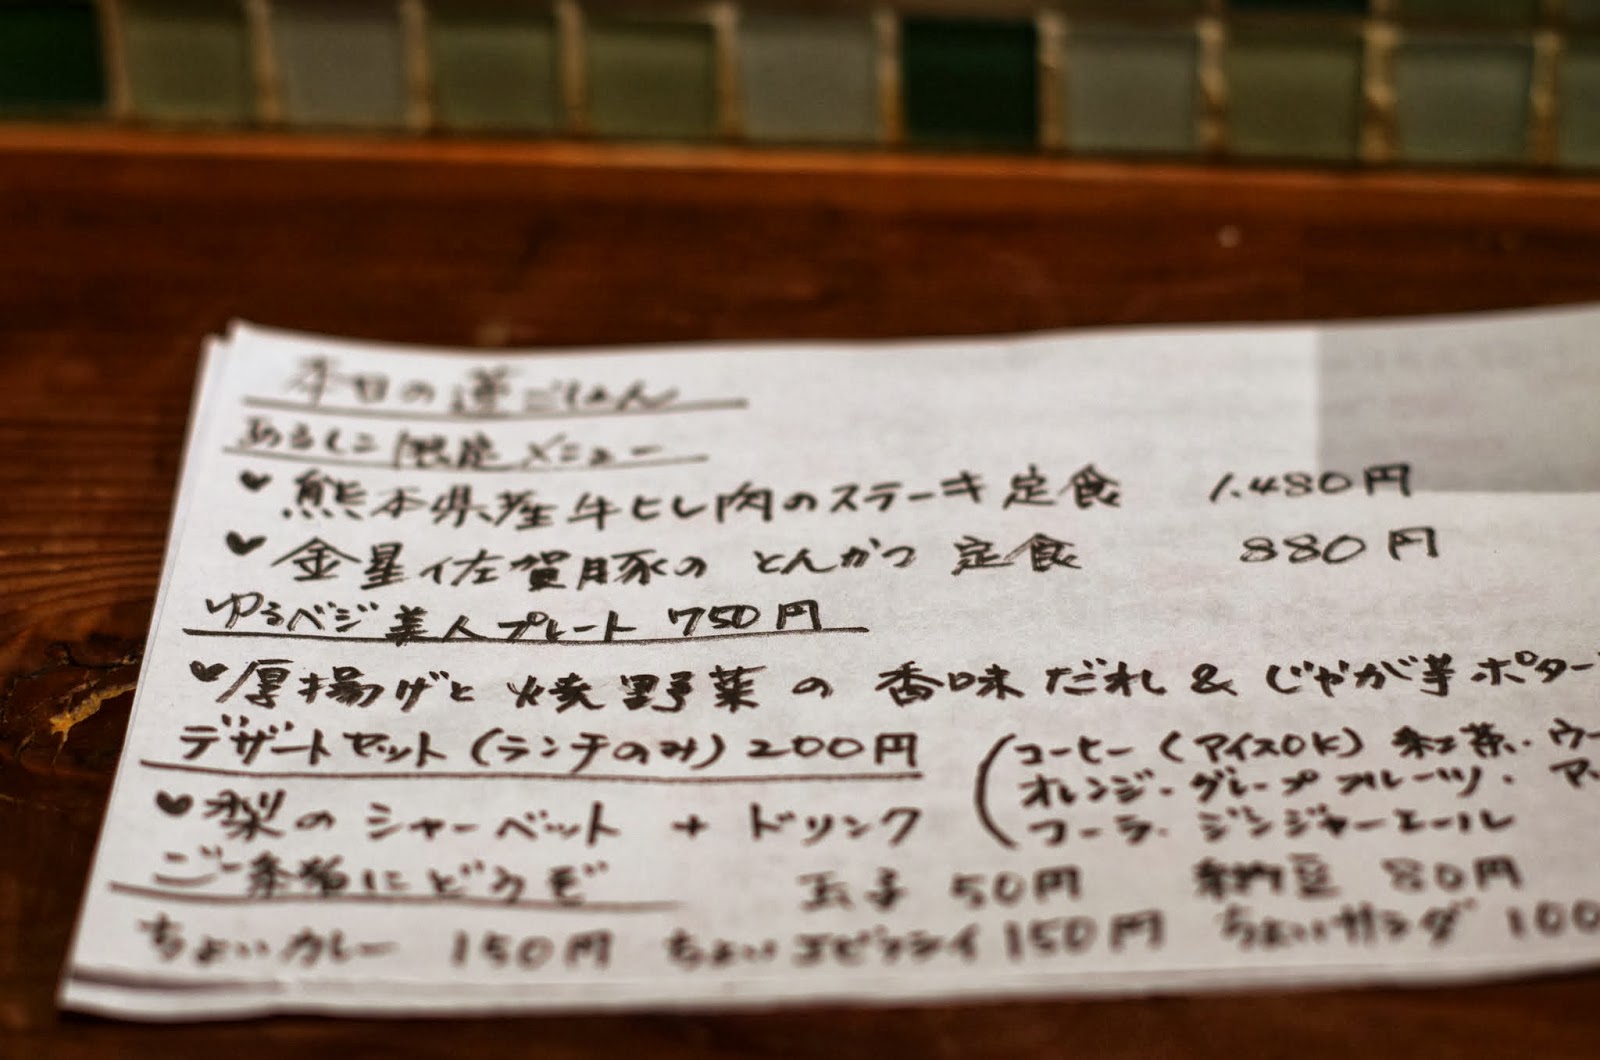 本日の蓮ごはん
あるもこ限定メニュー
熊本県産牛ヒレ肉のステーキ定食 1.480円
金星佐賀豚のとんかつ定食 880円
ゆるベジ美人プレート 750円
厚揚げと焼野菜の香味だれ & じゃが芋ポター
デザートセット(ランチのみ)200円 (コーヒー(アイスOK)紅茶.ウー
オレンジ.グレープフルーツ.ア
梨のシャーベット + ドリンク コーラ.ジンジャーエール
ご一緒にどうぞ 玉子 50円 納豆 80円
ちょいカレー 150円 ちょいエビフライ 150円 ちょいサラダ 100